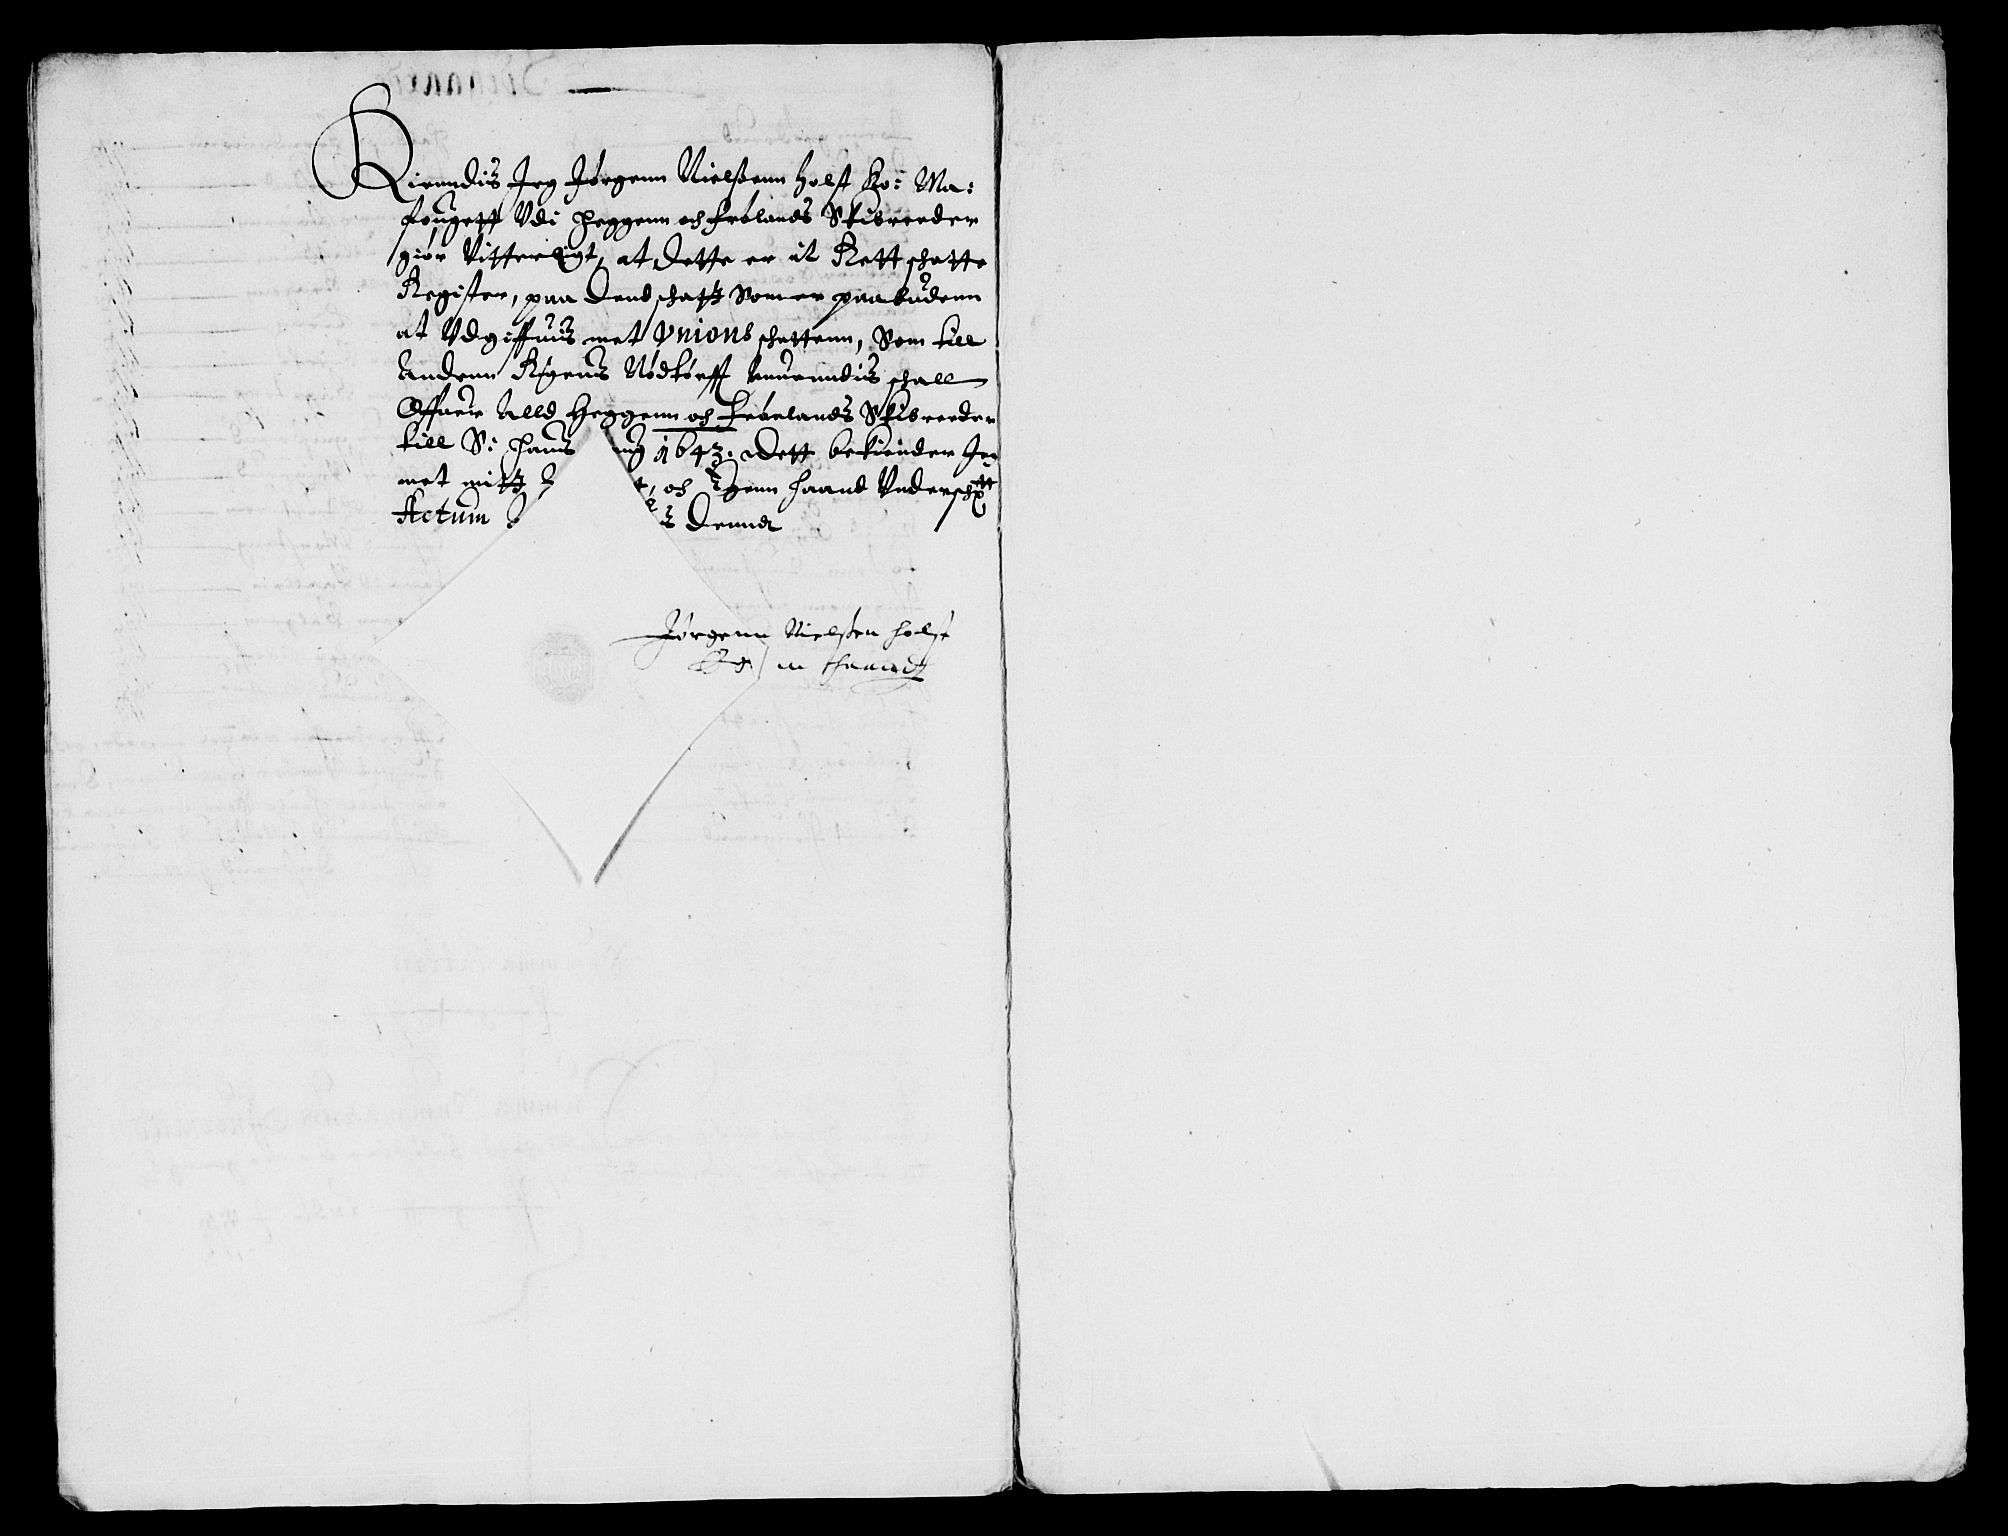 Kiendis Jeg Jørgenn Nielßenn Holst Ko: Ma:
fougett Vdi Heggenn och Frølands Skibreeder
giør Vitterligt, at dette er it Rett schatte
Register, paa dend schatt Som er paabudenn
at Vdgiffuis met Vnions schattenn, Som till
Andenn Rigens Nødtørfft Anuendis schall
Offuer Alld Heggenn och Frøelands Skibreeder
till S: Hans 1643. Dett bekiender Jeg
met mitt och Egenn Haand Vnderschrt
Actum
Jørgenn Nielßen Holst
Eg: m Haand